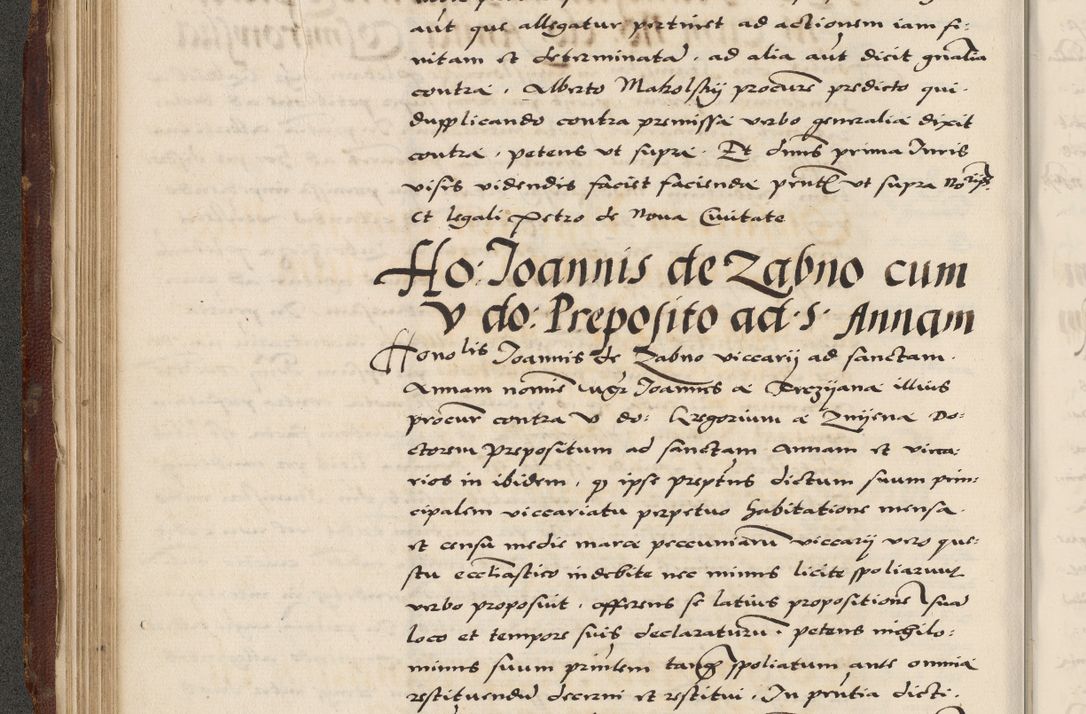 aut que allegatur pertinet ad actionem iam fi-
nitam et determinata, ad alia aut dicit gnalia
contra, Alberto Makolskij procure predicto qui-
dupplicando contra premissa verbo generalia dixit
contra, petens vt supra. Et dnus prima Iuris
visis videndis faciet facienda pnt vt supra No
et legali Petro de Noua Ciuitate
Ho: Ioannis de Zabno cum
V do: Preposito ad S. Annam
Honolis Ioannis de Zabno viccarij ad sanctam
Annam nomie Ioannis a Brezijana illius
procur contra V do: Gregorium a Znijena Do-
ctorem prepositum ad sanctam Annam et vicca-
rios in ibidem, q ipse preptus dictum suum prin-
cipalem viccariatu perpetuo habitatione mensa
et censu medie marca peccuniaru viccarij vero que-
stu eccliastico indebite nec minus licite spoliarunt
verbo proposuit, offerens se latius propositione sua
loco et tempore suis declaraturu, petens nichilo-
minus suum printem tanq spoliatum ante omnia
restituendu decerni et restitui. In pntia dicti